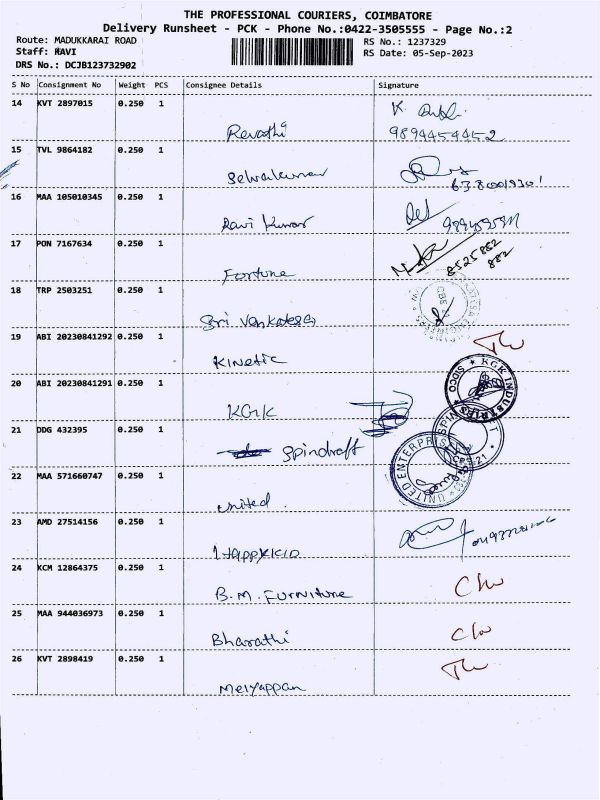 THE PROFESSIONAL COURIERS, COIMBATORE
Delivery Runsheet - PCK - Phone No.:0422-3505555 - Page No.:2
Route: MADUKKARAI ROAD RS No.: 1237329
Staff: RAVI RS Date: 05-Sep-2023
DRS No.: DCJB123732902
S No Consignment No Weight PCS Consignee Details Signature
14 KVT 2897015 0.250 1
Revathi 9894454452
15 TVL 9864182 0.250 1
Selvakumar
16 MAA 105010345 0.250 1
Ravi Kumar
17 PON 7167634 0.250 1
Fortune 8525882
882
18 TRP 2503251 0.250 1
Sri Venkatesa
19 ABI 20230841292 0.250 1
Kinetic
20 ABI 20230841291 0.250 1
KGK KGK INDUSTRIES SIDCO
21 DDG 432395 0.250 1
Spindraft
22 MAA 571660747 0.250 1
United UNITED ENTERPRISES
23 AMD 27514156 0.250 1
Happykid
24 KCM 12864375 0.250 1
B.M. Furniture
25 MAA 944036973 0.250 1
Bharathi
26 KVT 2898419 0.250 1
Meiyappan